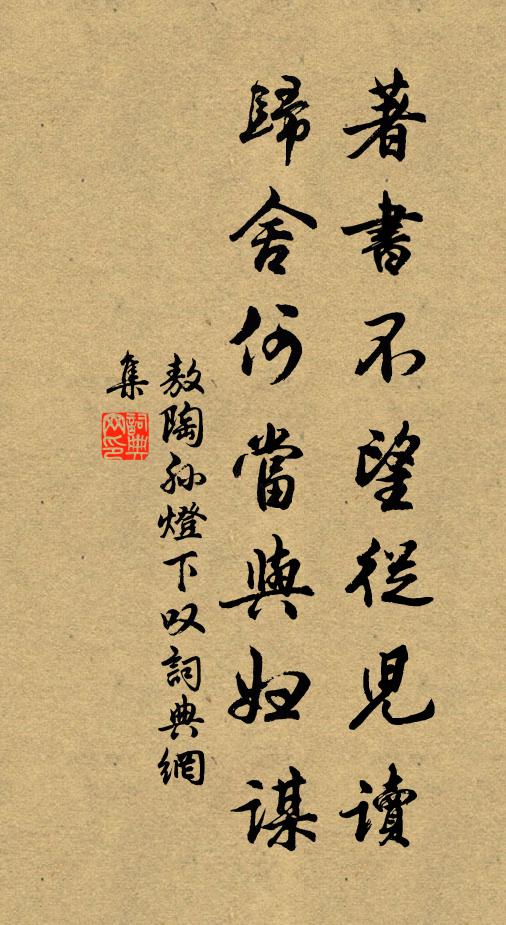 著書不望從兒讀
歸舍何當與婦謀
敖陶孙燈下叹詞典網
集
詞典网印